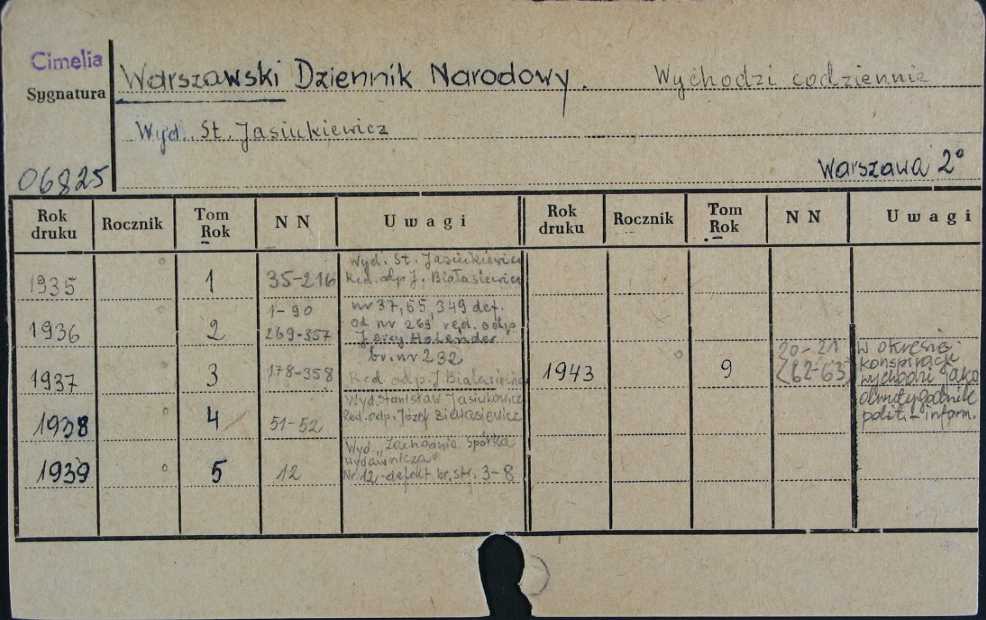 Cimelia
Sygnatura
Warszawski Dziennik Narodowy. Wychodzi codziennie
Wyd. St. Jasiukiewicz
06825 Warszawa 2°
Rok druku Rocznik Tom Rok NN Uwagi Rok druku Rocznik Tom Rok NN Uwagi
1935 1 35-216 Wyd. St. Jasiukiewicz
Red. odp. J. Białasiewicz
1936 2 1-90
269-357 nr 37, 65, 349 def.
od nr 269 red. odp.
Jerzy Holender
1937 3 178-358 br. nr 232
Red. odp. J Białasiewicz
1943 9 20-21
(62-63) w okresie
konspiracji
wychodzi jako
polit. - inform.
1938 4 51-52 Wyd. Stanisław Jasiukowicz
Red. odp. Józef Białasiewicz
1939 5 12 Wyd. "Zachodnia Spółka
Wydawnicza"
Nr. 12 - defekt br. str. 3-8